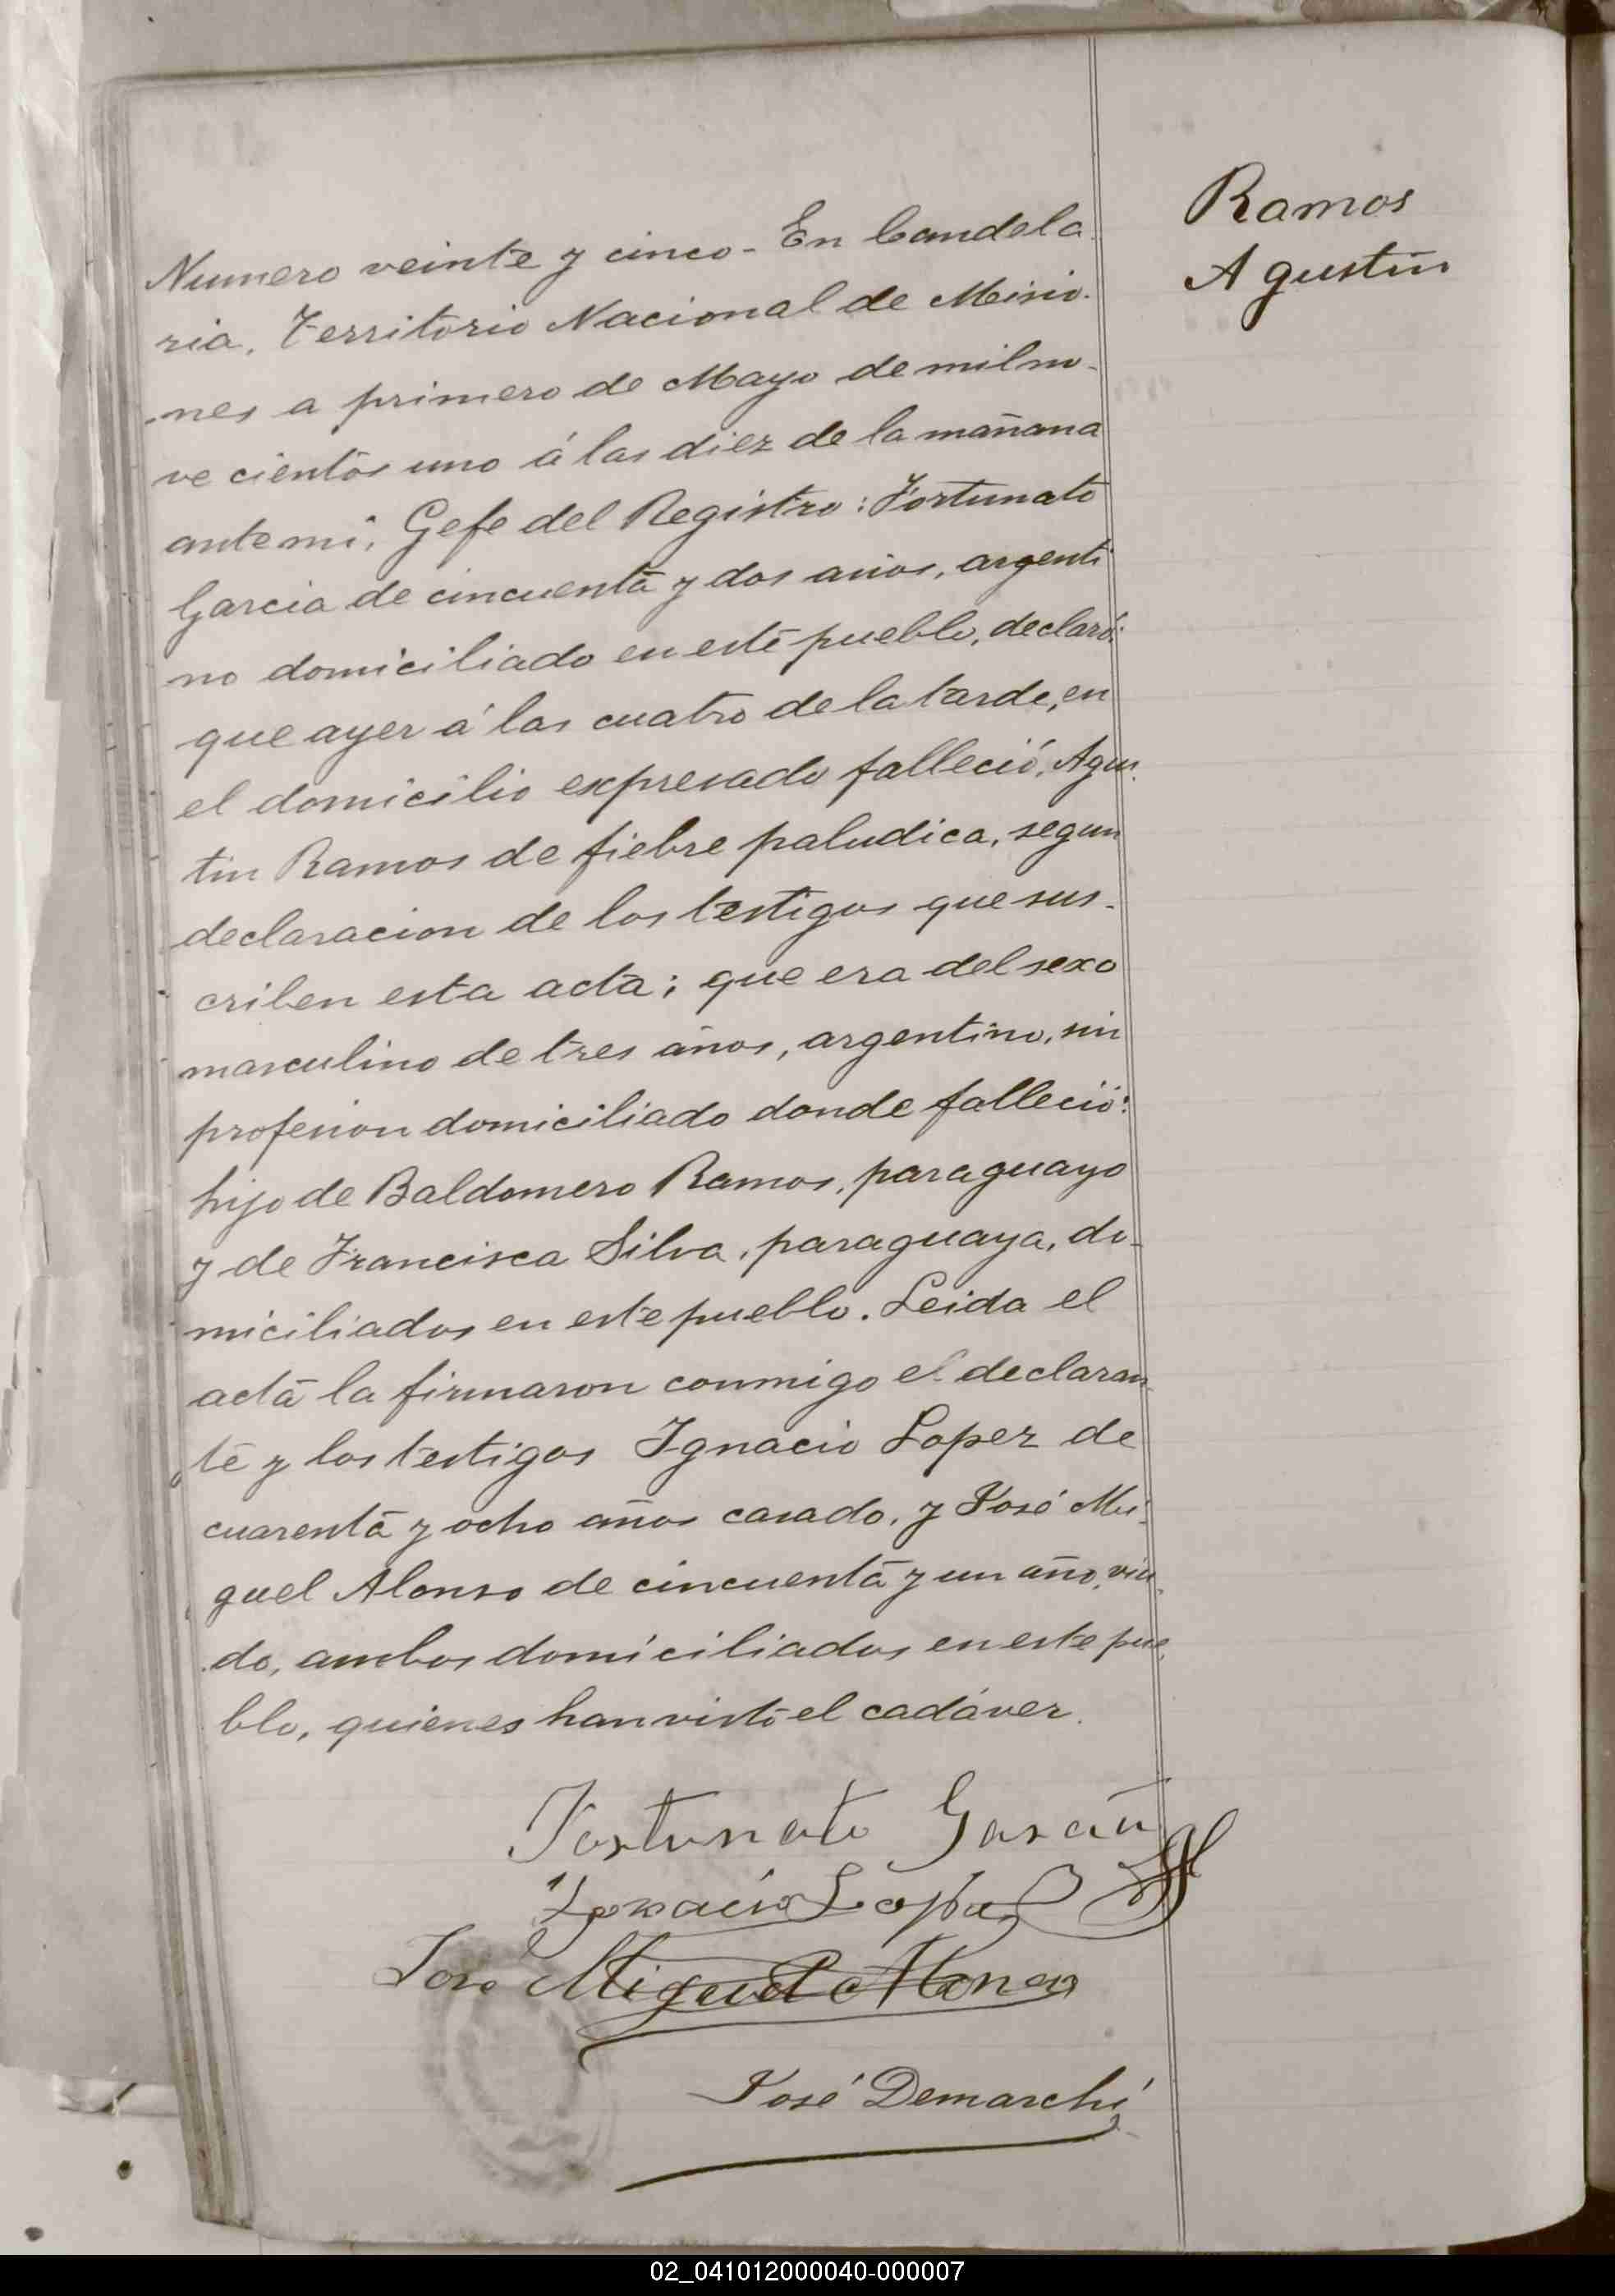 Ramos
Agustin
Numero veinte y cinco - En Candela
ria, Territorio Nacional de Misio-
nes a primero de Mayo de mil no-
ve cientos uno á las diez de la mañana
ante mi, Gefe del Registro: Fortunato
Garcia de cincuenta y dos años, argenti
no domiciliado en este pueblo, declaró:
que ayer á las cuatro de la tarde, en
el domicilio expresado falleció, Agus-
tin Ramos de fiebre paludica, segun
declaracion de los testigos que sus-
criben esta acta; que era del sexo
masculino de tres años, argentino, sin
profesion domiciliado donde falleció:
hijo de Baldomero Ramos, paraguayo
y de Francisca Silva, paraguaya, do-
miciliados en este pueblo. Leida el
acta la firmaron conmigo el declaran-
te y los testigos Ignacio Lopez de
cuarenta y ocho años casado, y José Mi-
guel Alonso de cincuenta y un año, viu-
do, ambos domiciliados en este pue-
blo, quienes han visto el cadáver.
Fortunato Garcia
Ignacio Lopez
Jose Miguel Alonso
José Demarchi
02_041012000040-000007